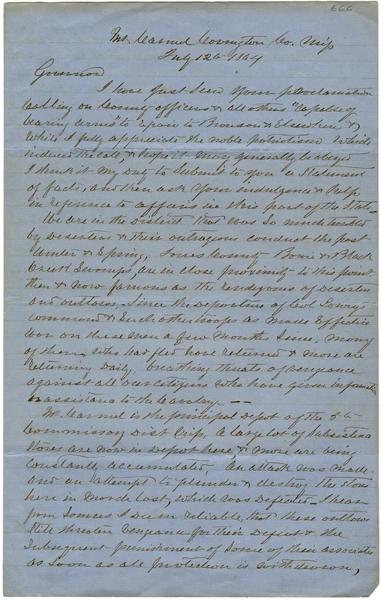 666
Mt. Carmel Covington Co. Miss
July 12th 1864
Governor
I have just seen your proclamation
calling on County officers & all others "capable of
bearing arms" to repair to Brandon & Elsewhere &
While I fully appreciate the noble patriotism which
induced the call, & hope it may generally be obeyed
I think it my duty to submit to you a statement
of facts, and then ask your indulgence & help
in reference to affairs in this part of the State.
We are in the District that was so much troubled
by deserters & their outrageous conduct the past
Winter & Spring, Jones County Bowie & Black
Creek Swamps, are in close proximity to this point
then & now famous as the rendezvous of deserters
and outlaws. Since the departure of Col Lowry's
command & such other troops as made Effective
war on these men a few months since, many
of them, who had fled have returned & more are
returning daily, breathing threats of vengeance
against all our citizens who have given information
or assistance to the Cavalry. —
Mt. Carmel is the principal depot of the 5th
Commissary Dist Miss, A large lot of Subsistence
Stores are now in Depot here, & more are being
constantly accumulated, An attack was made
and an attempt to plunder & destroy the stores
here in March last, which was Defeated. I hear
from sources I deem reliable, that these outlaws
still threaten vengeance for their Defeat & the
Subsequent punishment of some of their associates
as soon as all protection is withdrawn,